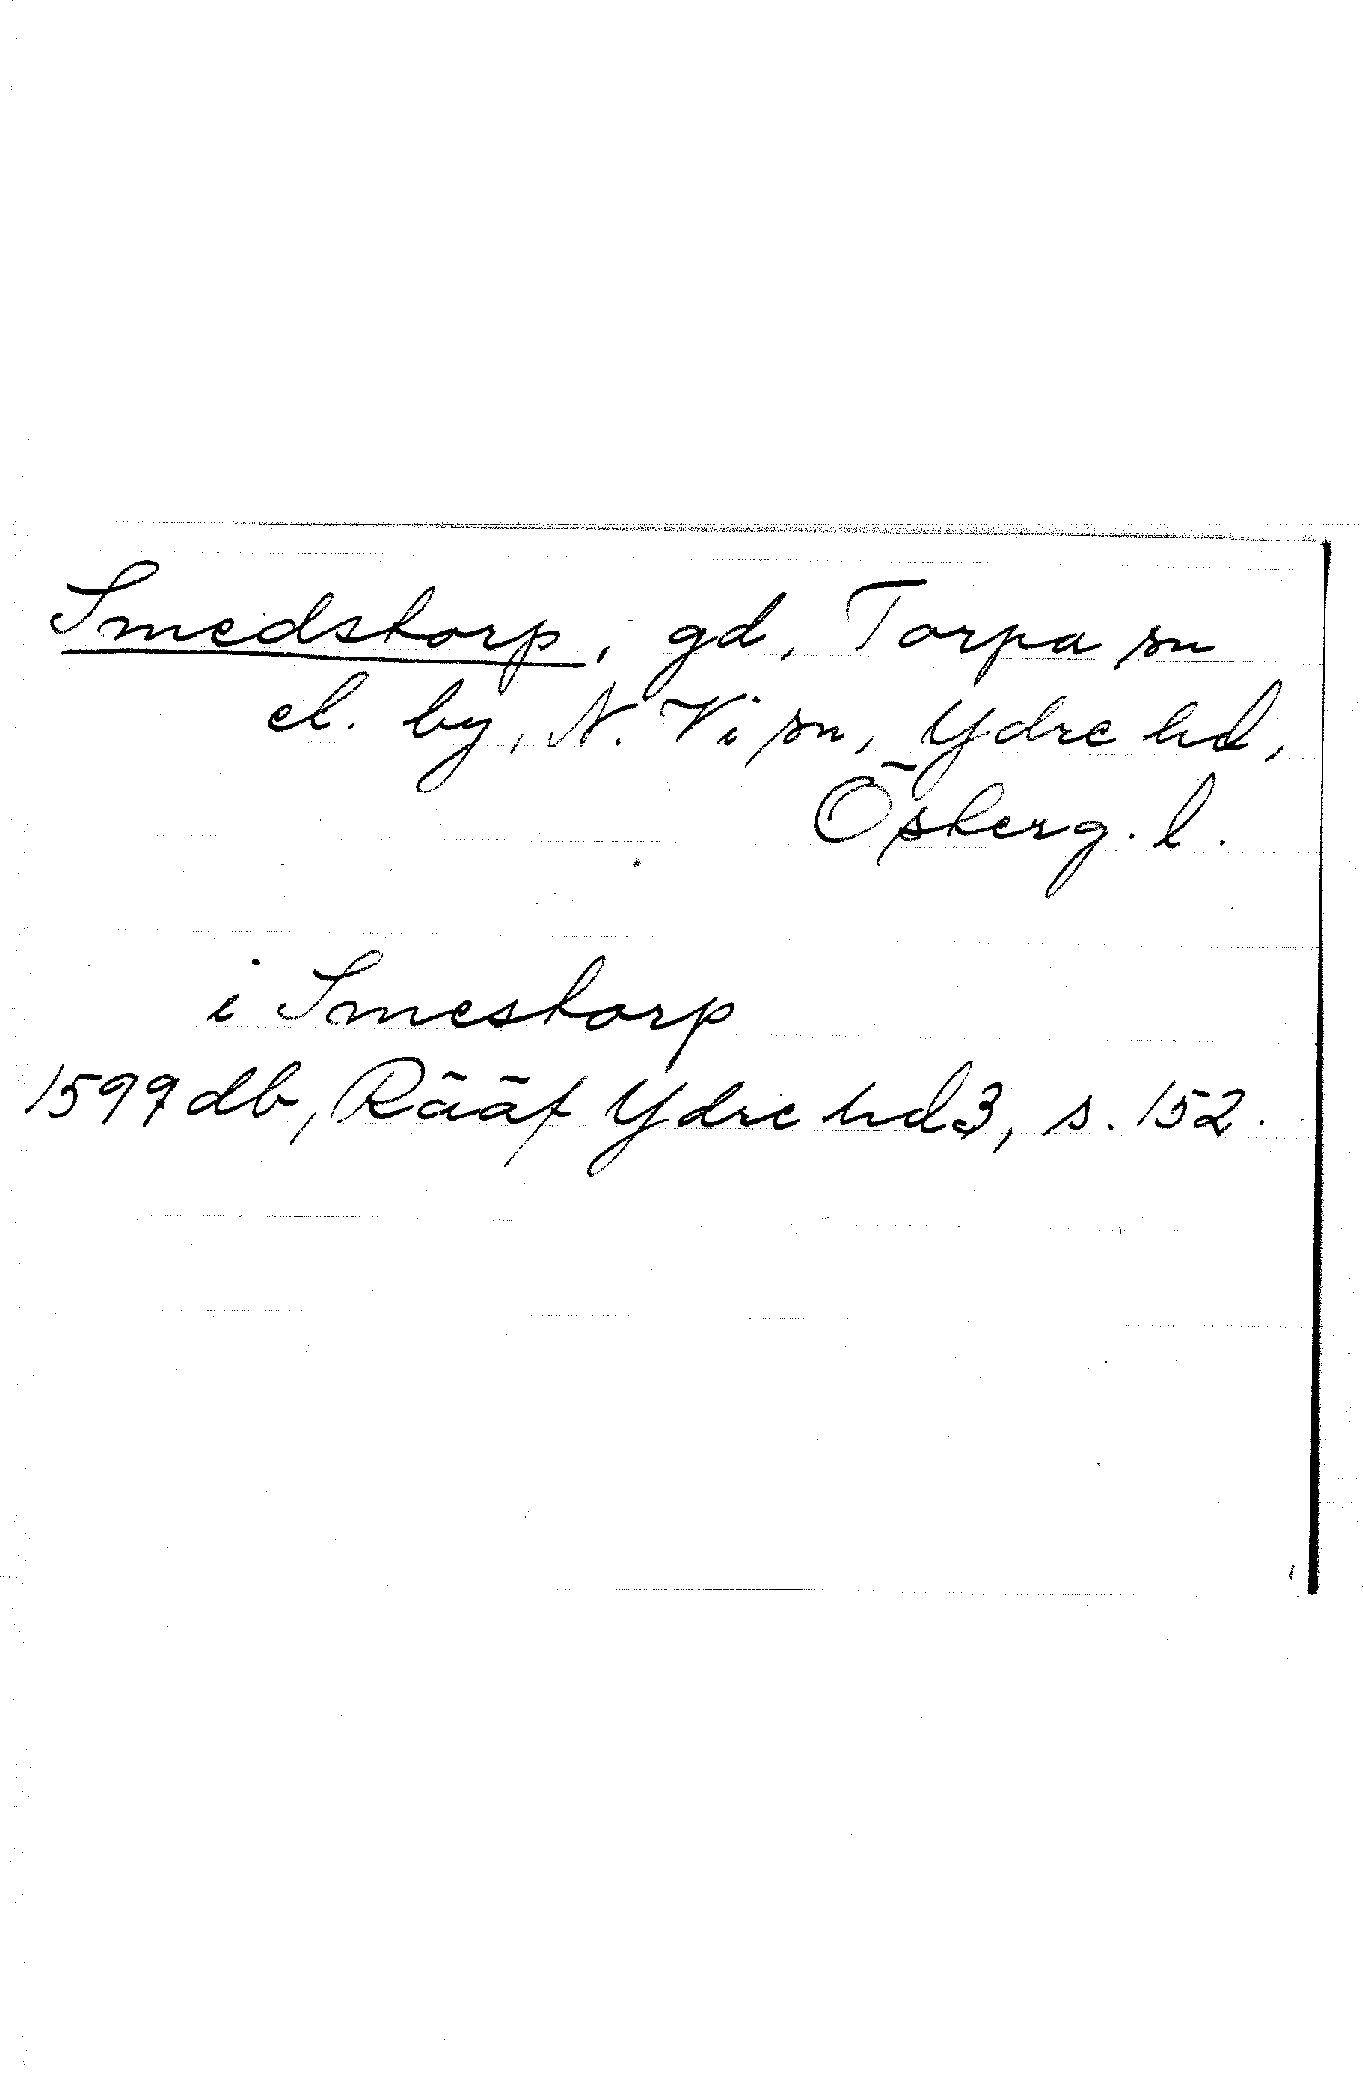 Smedstorp, gd, Torpa sn
el. by, N. Vi sn, Ydre hd,
Österg. l.
i Smestorp
1599 db, Rääf Ydre hd 3, s. 152.